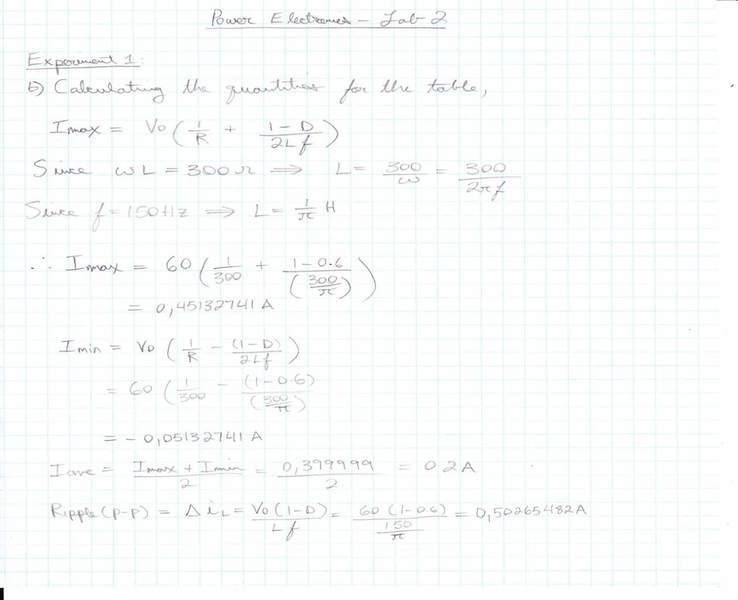 Power Electronics - Lab 2
Experiment 1:
b) Calculating the quantities for the table,
Imax = Vo (1/R + (1-D)/(2Lf))
Since ωL = 300Ω ⇒ L = 300/ω = 300/(2πf)
Since f = 150Hz ⇒ L = 1/π H
∴ Imax = 60 (1/300 + (1-0.6)/(300/π))
= 0,45132741 A
Imin = Vo (1/R - (1-D)/(2Lf))
= 60 (1/300 - (1-0.6)/(300/π)
= -0,05132741 A
Iave = (Imax + Imin)/2 = 0,399999/2 = 0.2A
Ripple (p-p) = ΔiL = Vo(1-D)/(Lf) = 60(1-0.6)/(150/π) = 0,50265482A